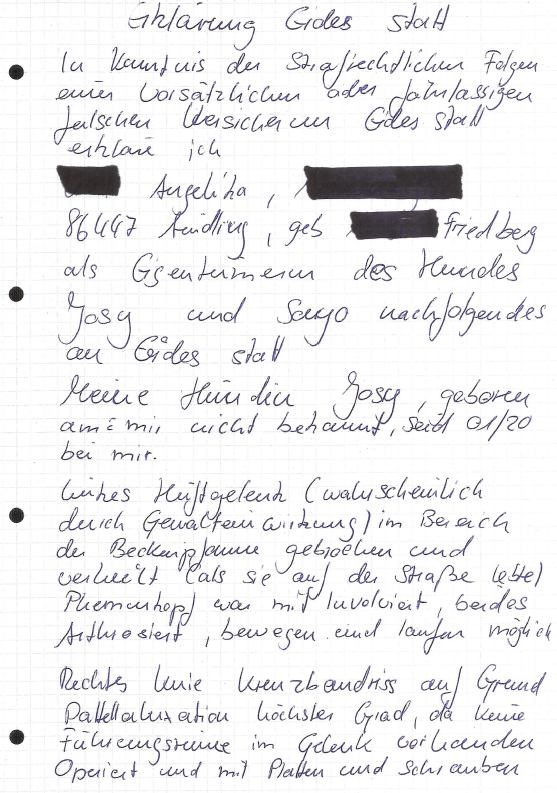 Erklärung Eides statt
In Kenntnis der Strafrechtlichen Folgen
einer Vorsätzlichen oder fahrlässigen
falschen Versicherun Eides statt
erkläre ich
Angelika ,
86447 Aindling , geb Friedberg
als Eigentümerin des Hundes
Josy und Sayo nachfolgendes
an Eides statt
Meine Hündin Josy , geboren
am = mir nicht bekannt, seit 01/20
bei mir.
Linkes Hüftgelenk (warscheinlich
durch Gewalteinwirkung) im Bereich
der Beckenpfanne gebrochen und
verheilt (als sie auf der Straße lebte)
war mit Involviert, beides
Arthrosiert , bewegen und laufen möglich
Rechtes Knie Kreuzbandriss auf Grund
Patellaluxation höchster Grad, da keine
Führungsrinne im Gelenk vorhanden
Operiert und mit Platten und Schrauben